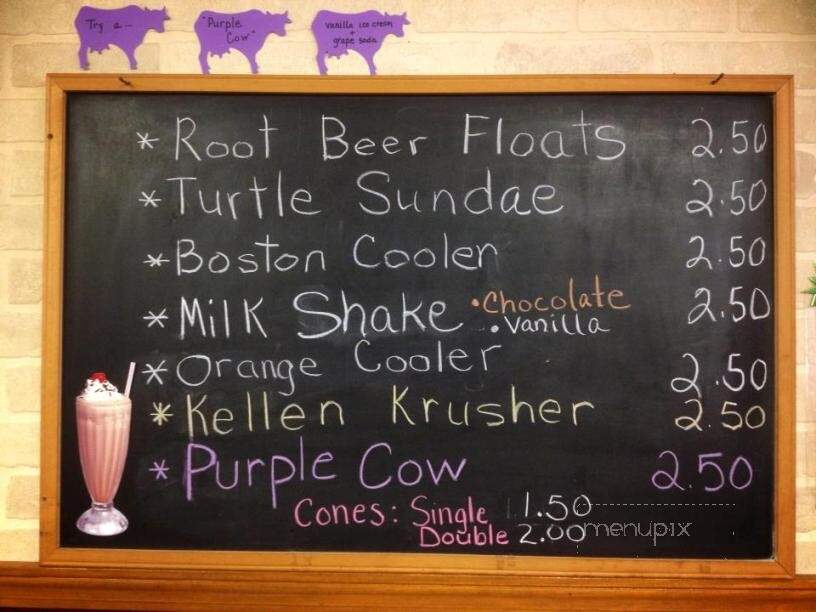 Try a -
"Purple
Cow"
vanilla ice cream
+
grape soda
* Root Beer Floats 2.50
* Turtle Sundae 2.50
* Boston Cooler 2.50
* Milk Shake • Chocolate 2.50
• Vanilla
* Orange Cooler 2.50
* Kellen Krusher 2.50
* Purple Cow 2.50
Cones: Single 1.50
Double 2.00
menupix